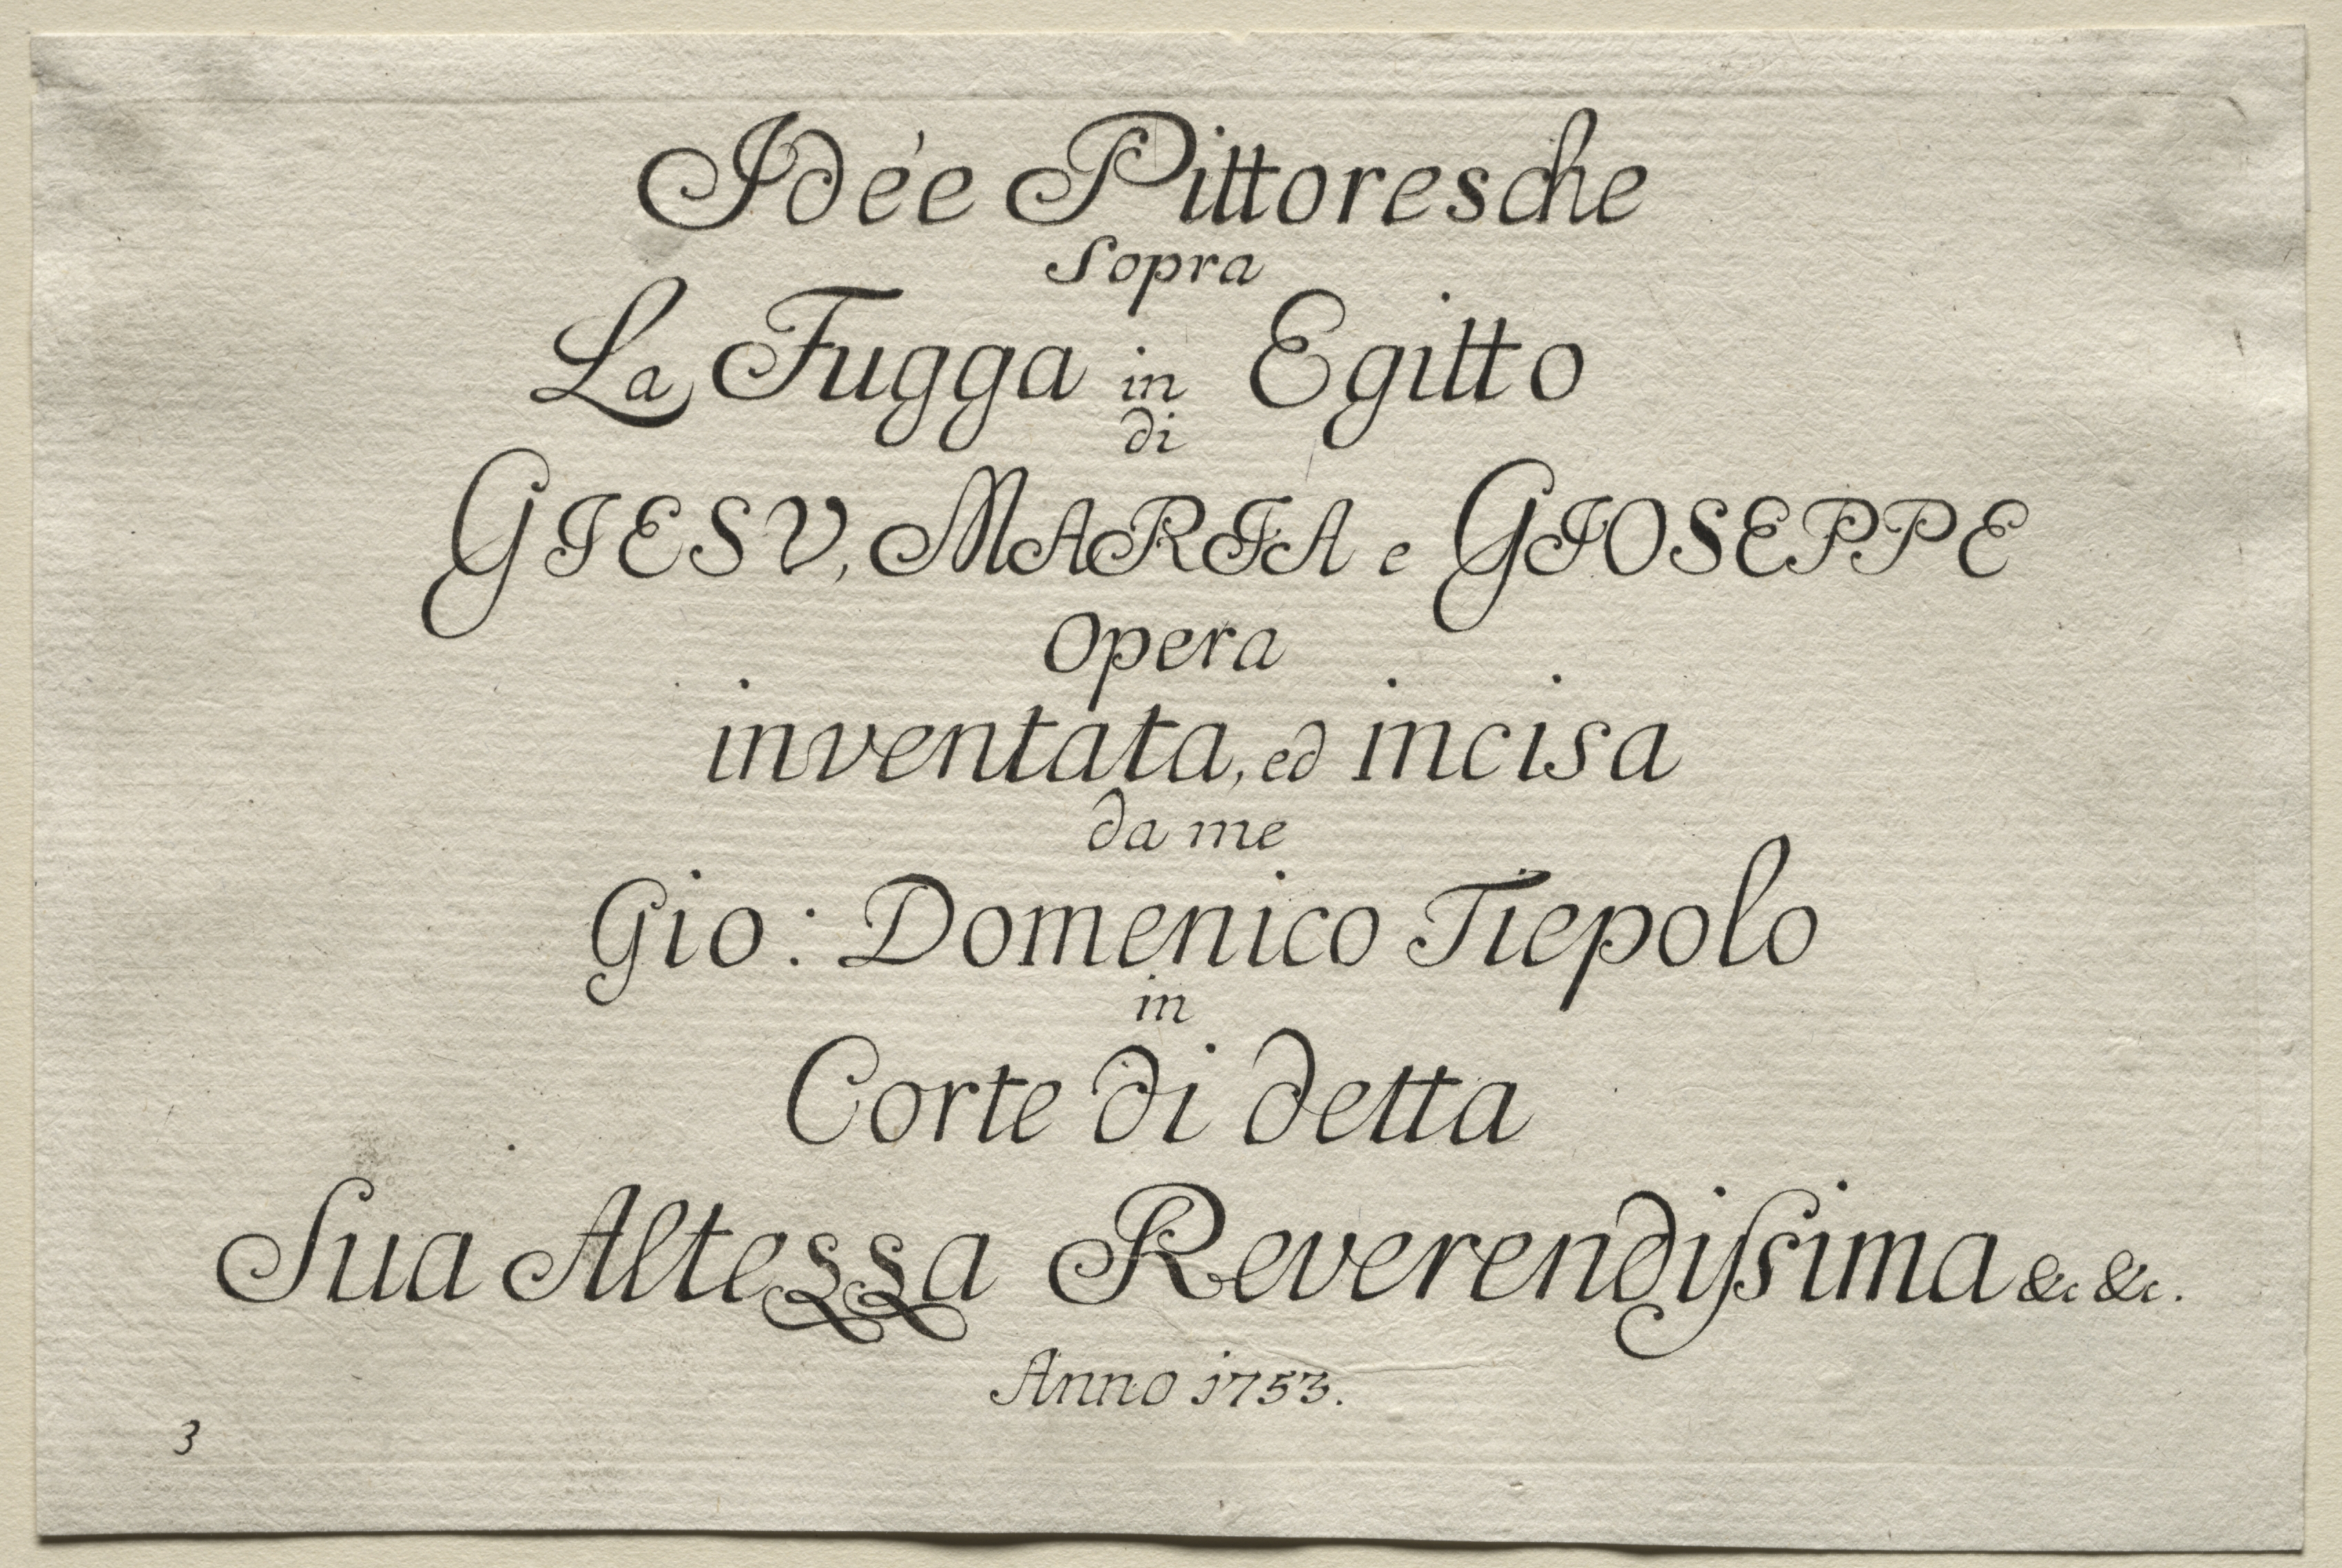 Idée Pittoresche
Sopra
La Fugga in Egitto
di
GIESV, MARIA e GIOSEPPE
Opera
inventata, ed incisa
da me
Gio: Domenico Tiepolo
in
Corte di detta
Sua Altessa Reverendiſsima &c &c.
Anno 1753.
3